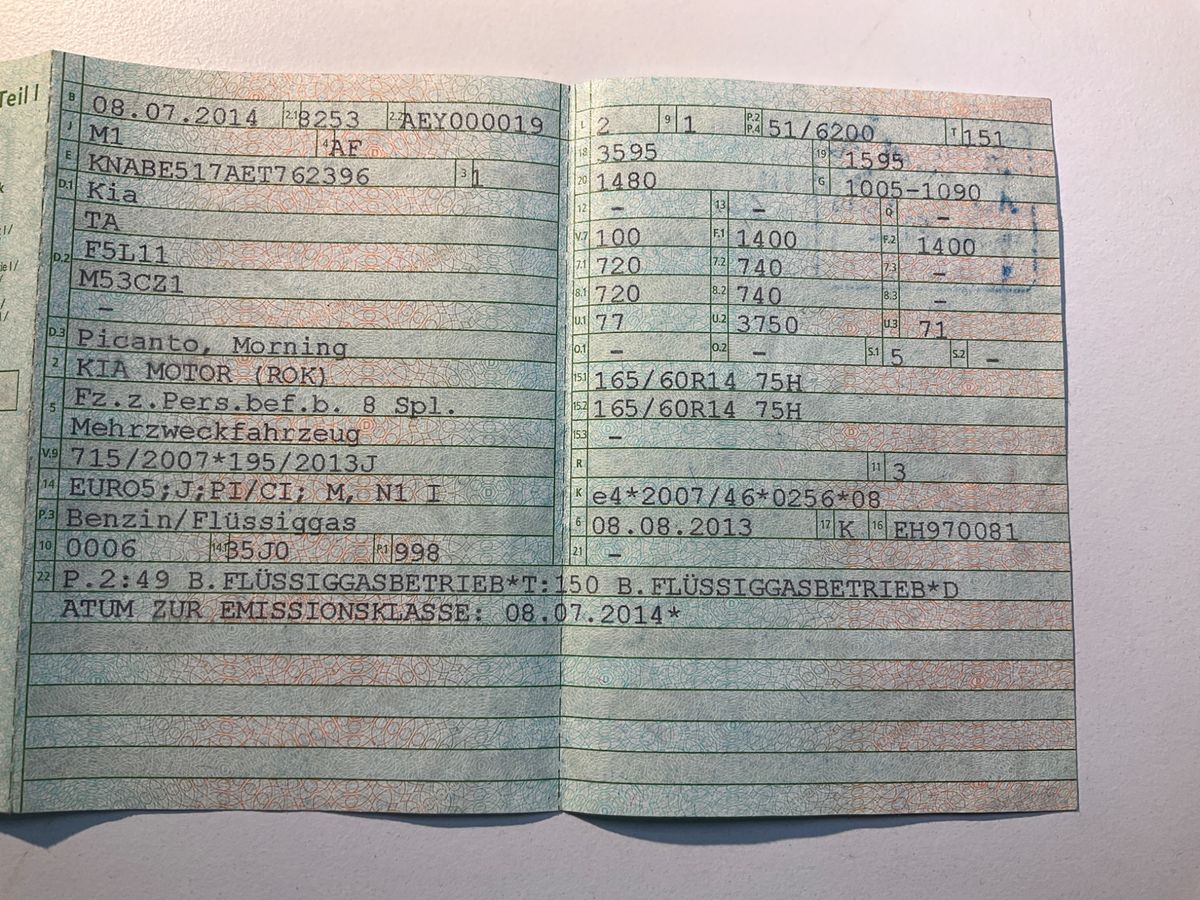 Teil I
B 08.07.2014 2.1 8253 2.2 AEY000019
J M1 4 AF
E KNABE517AET762396 3 1
D.1 Kia
TA
D.2 F5L11
M53CZ1
–
D.3 Picanto, Morning
2 KIA MOTOR (ROK)
5 Fz.z.Pers.bef.b. 8 Spl.
Mehrzweckfahrzeug
V.9 715/2007*195/2013J
14 EURO5;J;PI/CI; M, N1 I
P.3 Benzin/Flüssiggas
10 0006 14.1 35J0 P.1 998
L 2 9 1 P.2 P.4 51/6200 T 151
18 3595 19 1595
20 1480 G 1005-1090
12 – 13 – Q –
V.7 100 F.1 1400 F.2 1400
7.1 720 7.2 740 7.3 –
8.1 720 8.2 740 8.3 –
U.1 77 U.2 3750 U.3 71
O.1 – O.2 – S.1 5 S.2 –
15.1 165/60R14 75H
15.2 165/60R14 75H
15.3 –
R 11 3
K e4*2007/46*0256*08
6 08.08.2013 17 K 16 EH970081
21 –
22 P.2:49 B.FLÜSSIGGASBETRIEB*T:150 B.FLÜSSIGGASBETRIEB*D
ATUM ZUR EMISSIONSKLASSE: 08.07.2014*